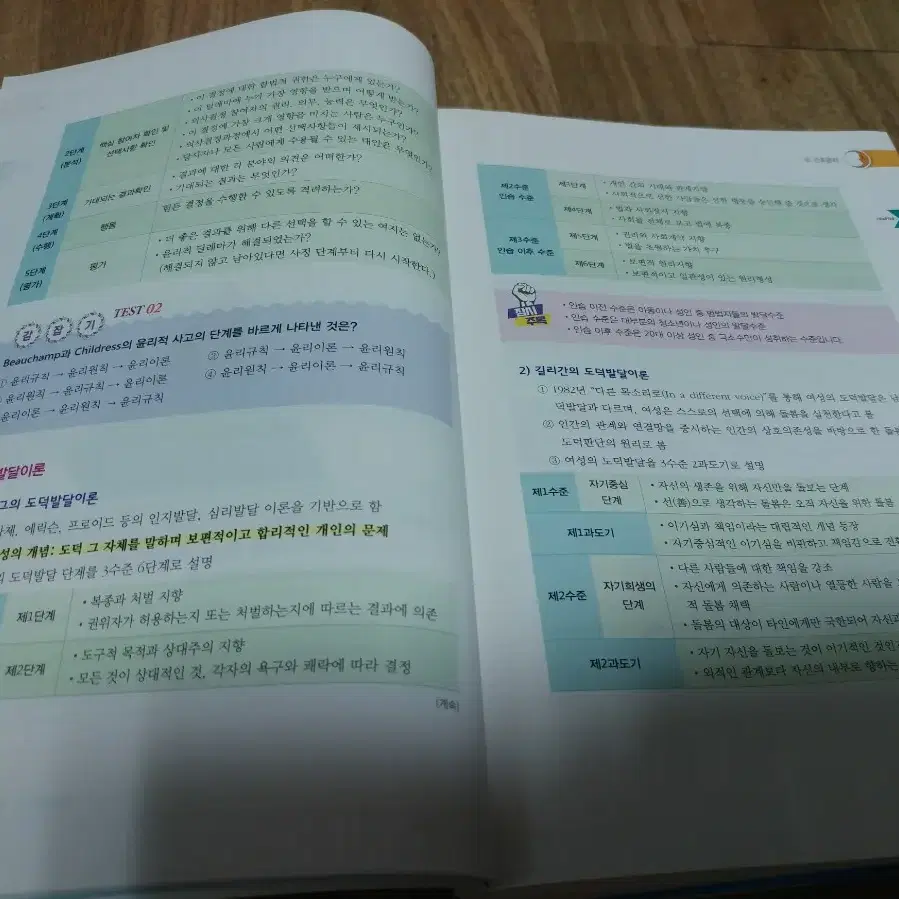 2단계
(분석)
핵심 참여자 확인 및
선택사항 확인
• 이 결정에 대한 합법적 권한은 누구에게 있는가?
• 이 딜레마에 누가 가장 영향을 받으며 어떻게 받는가?
• 의사결정 참여자의 권리, 의무, 능력은 무엇인가?
• 이 결정에 가장 크게 영향을 미치는 사람은 누구인가?
• 의사결정과정에서 어떤 선택사항들이 제시되는가?
모든 사람에게 수용될 수 있는 대안은 무엇인가?
3단계
(계획)
기대되는 결과확인
• 결과에 대한 각 분야의 의견은 어떠한가?
• 기대되는 결과는 무엇인가?
4단계
(수행)
행동
힘든 결정을 수행할 수 있도록 격려하는가?
5단계
(평가)
평가
• 더 좋은 결과를 위해 다른 선택을 할 수 있는 여지는 없는가?
• 윤리적 딜레마가 해결되었는가?
(해결되지 않고 남아있다면 사정 단계부터 다시 시작한다.)
감 잡 기 TEST 02
Beauchamp과 Childress의 윤리적 사고의 단계를 바르게 나타낸 것은?
① 윤리규칙 → 윤리원칙 → 윤리이론
② 윤리규칙 → 윤리이론 → 윤리원칙
윤리원칙 → 윤리규칙 → 윤리이론
④ 윤리원칙 → 윤리이론 → 윤리규칙
윤리이론 → 윤리원칙 → 윤리규칙
발달이론
그의 도덕발달이론
에릭슨, 프로이드 등의 인지발달, 심리발달 이론을 기반으로 함
성의 개념: 도덕 그 자체를 말하며 보편적이고 합리적인 개인의 문제
도덕발달 단계를 3수준 6단계로 설명
제1단계
• 복종과 처벌 지향
• 권위자가 허용하는지 또는 처벌하는지에 따르는 결과에 의존
제2단계
• 도구적 목적과 상대주의 지향
• 모든 것이 상대적인 것, 각자의 욕구와 쾌락에 따라 결정
(계속)
제2수준
인습 수준
제3단계
• 개인 간의 기대와 관계지향
제4단계
• 법과 사회질서 지향
제3수준
인습 이후 수준
제5단계
• 권리와 사회계약 지향
• 법을 초월하는 가치 추구
제6단계
• 보편적 원리지향
• 보편적이고 일관성이 있는 원리형성
감사
주목
• 인습 이전 수준은 아동이나 성인 중 범법자들의 발달수준
• 인습 수준은 대부분의 청소년이나 성인의 발달수준
• 인습 이후 수준은 20대 이상 성인 중 극소수만이 성취하는 수준입니다.
2) 길리간의 도덕발달이론
① 1982년 “다른 목소리로(In a different voice)”를 통해 여성의 도덕발달은 남
덕발달과 다르며, 여성은 스스로의 선택에 의해 돌봄을 실천한다고 봄
② 인간의 관계와 연결망을 중시하는 인간의 상호의존성을 바탕으로 한 돌봄
도덕판단의 원리로 봄
③ 여성의 도덕발달을 3수준 2과도기로 설명
제1수준
자기중심
단계
• 자신의 생존을 위해 자신만을 돌보는 단계
• 선(善)으로 생각하는 돌봄은 오직 자신을 위한 돌봄
제1과도기
• 이기심과 책임이라는 대립적인 개념 등장
• 자기중심적인 이기심을 비판하고 책임감으로 전환
제2수준
자기희생의
단계
• 다른 사람들에 대한 책임을 강조
• 자신에게 의존하는 사람이나 열등한 사람을
적 돌봄 채택
• 돌봄의 대상이 타인에게만 국한되어 자신과
제2과도기
• 자기 자신을 돌보는 것이 이기적인 것인
• 외적인 관계보다 자신의 내부로 향하는